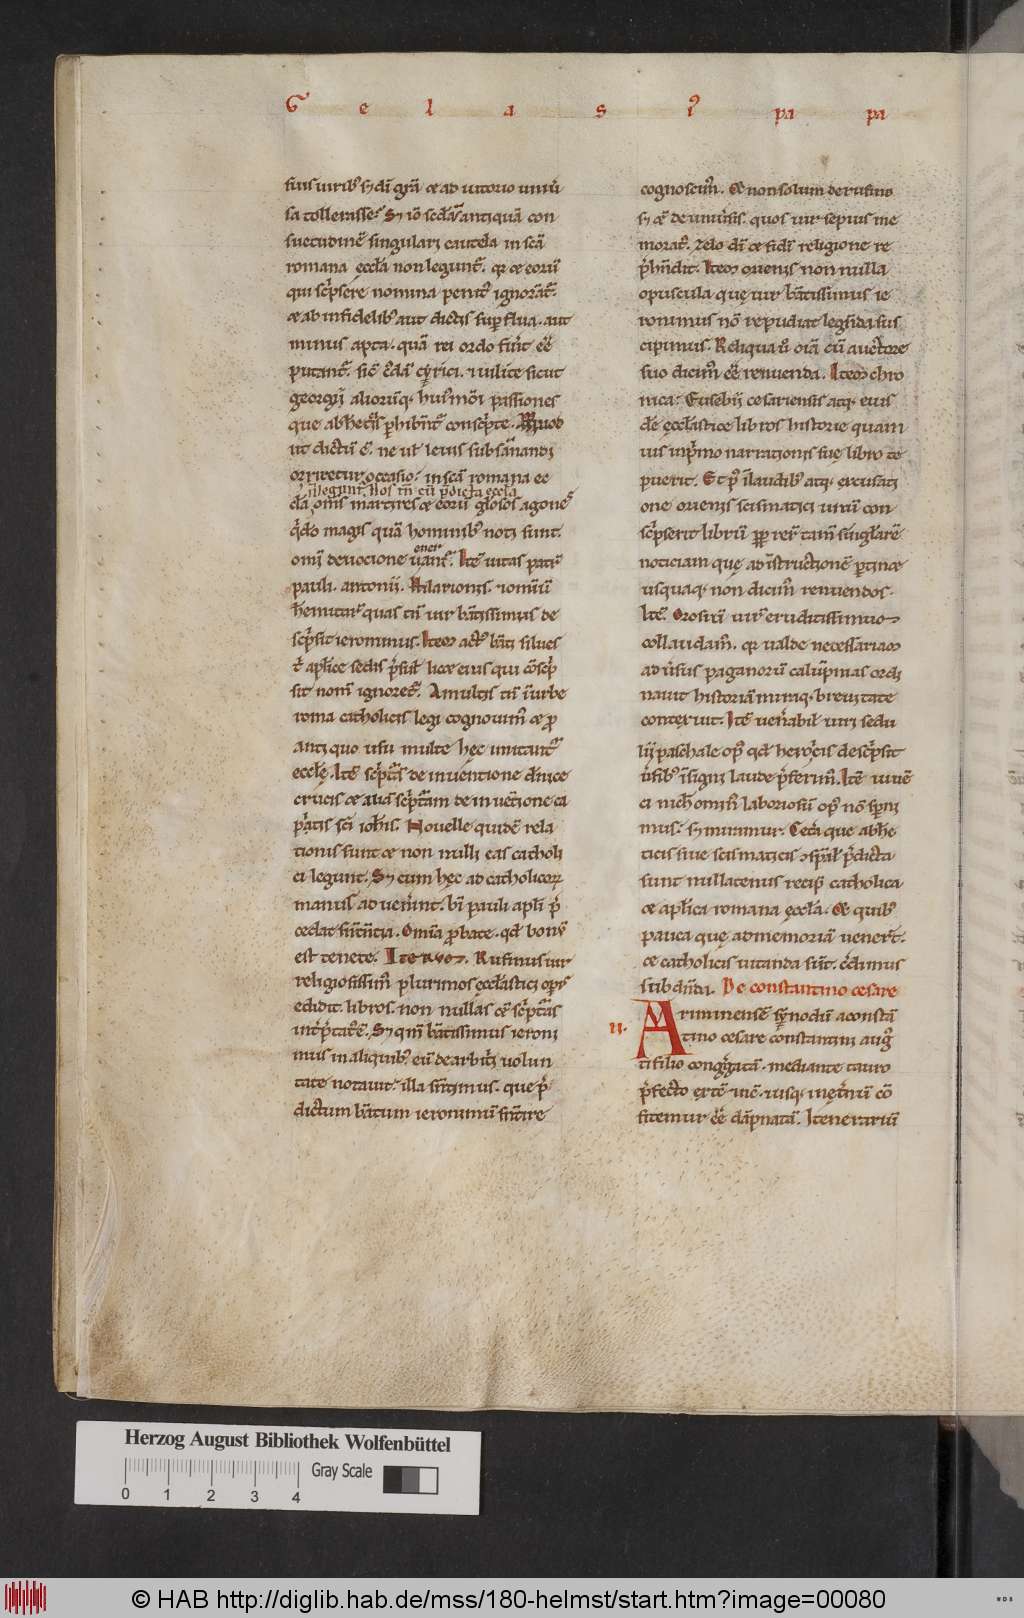 G e l a s i' pa pa
suis uirib; s; dī grā & ad uictorio uniu̾
sa tollerasse. S; iō sc̄dā antiquā con
suetudinē singulari cautela in scā
romana ęccła non legunt᷑. qr & eorū
qui sc̾psere nomina penit᷒ ignorāt᷑.
& ab infidelib; aut dictis sup flua. aut
minus apta. quā rei ordo fuit eē
putant᷑. sic̄ cuiꝰdā cyrici. & iulite sicut
georgii aliorūq. hui᷒ mōi passiones
que ab hetic̾s phibent᷑ conscpte. Quod
ut dictū ē. ne uł leuis subsannandi
oriretur occasio. in scā romana ec
n̄ legunt᷑. Nos tn̄ cū p̄dicta eccła
cła om̄s martyres & eorū głosos agones
q̾ dō magis quā hominib; noti sunt.
omī deuocione uenerant᷑. Itē uitas patr̄
pauli. antonii. hilarionis. & omīū
hemitar quas tn̄ uir bātissimus de
sc̾psit ieronimus. Item act᷒ bāti silues
t̾ aplice sedis p̾sulis licet eius qui cōsc̾p
sit nom̄ ignoret᷑. A multis tn̄ ī urbe
roma catholicis legi cognouim᷒ & p
antiquo usu multe hęc imitant᷑
eccłę. Itē sc̾pt̾a de inuentione dn̄ice
crucis & alia sc̾pt̾am de inuēcione ca
pitis sc̄i ioh̄is. Nouelle quidē rela
tionis sunt & non nulli eas catholi
ci legunt. S; cum hęc ad catholicor̄
manus aduenerint. bī pauli apłi p̾
cedat sn̄tentia. Omīa pbate. qd bonū
est tenete. Item. Rufinus uir
religiosissim᷒ plurimos ęcclasticı op̾s
edidit libros. non nullas ē sc̾pt̾as
int̾p̾tat᷒ ē. S; qm̄ bātissimus ieroni
mus in aliquib; eū de arbitrii uolun
tate notauit. illa sn̄timus. que p̾
dictum bātum ieronimū sn̄tire
cognoscim᷒. Et non solum de rufino
s; & de uniu̾sis. quos uir sepius me
morat᷒. zelo dī & fidei religione re
p̾hendit. Item origenis non nulla
opuscula quę uir bātissimus ie
ronimus nō repudiat legenda sus
cipimus. Reliqua u̾ oīa cū auctore
suo dicim᷒ eē renuenda. Item chro
nica. Eusebij cesariensis atq. eius
dē ęccłastice libros historie quam
uis in p̾mo narrationis suę libro te
puerit. Et p᷒ ī laudib; atq. excusati
one origenis scismatici unū con
sc̾pserit librū ppt rer̄ tam̄ singularē
noticiam quę ad īstructionē ptinet
usquaq. non dicim᷒ renuendos.
Itē. Orosiū uir̄ eruditissimum
collaudam᷒. qr ualde necessariam
ad u̾sus paganorū calūpnias ordi
nauit historiā miraq. breuitate
contexuit. Itē uen̾abiłi uiri sedu
lii paschale op᷒ qd heroicis desc̾psit
u̾sib; ī signi laude p̾ferim᷒. Itē iuuē
ci nichominꝰ laboriosū op᷒ nō sp̾ni
mus. s; miramur. Cet̾a que ab he
ticis siue scismaticis ꝯsp̾ta ł p̾dicta
sunt nullatenus recip̾ catholica
& aplica romana ęccła. Et quib;
pauca quę ad memoriā uenert̄.
& catholicis uitanda sūt. c̾dimus
subdn̄da. De constantino cesare
II. Ariminensē synodū a constā
tino cesare constantini aug̾
ti filio congregatā. mediante tauro
p̾fecto ex tē & nc̄. & usq. in ęt̾nū cō
fitemur eē dāpnatā. Itenerariū
Herzog August Bibliothek Wolfenbüttel
Gray Scale
0 1 2 3 4
© HAB http://diglib.hab.de/mss/180-helmst/start.htm?image=00080